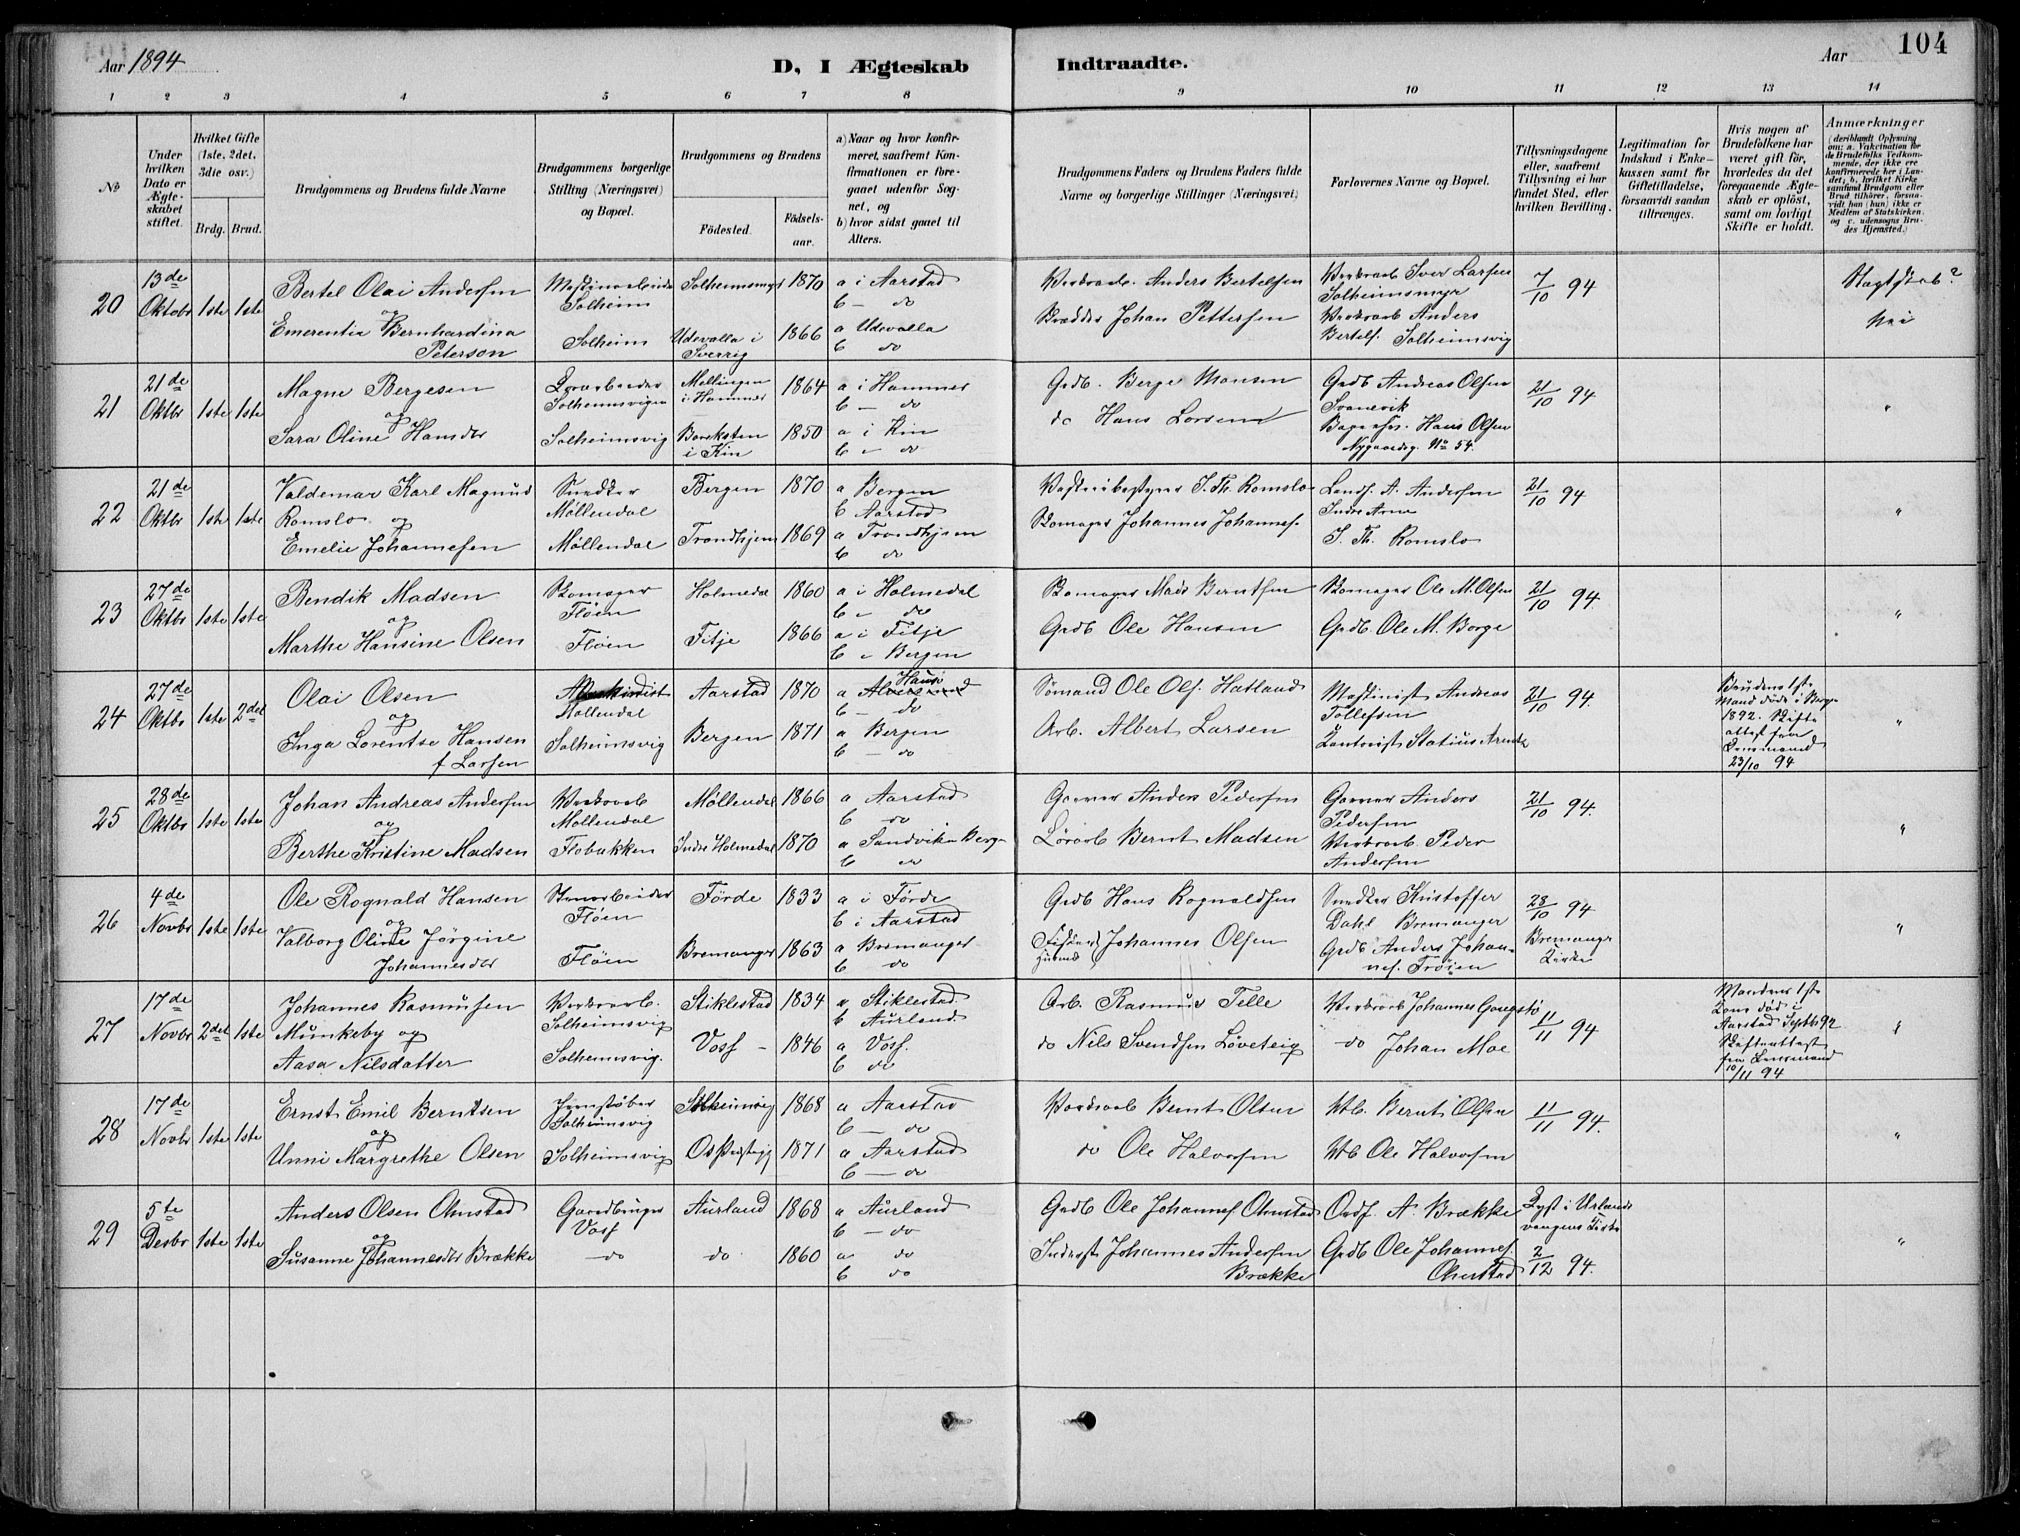 Aar 1894
D, I Ægteskab Indtraadte.
Aar
104
1 2 3 4 5 6 7 8 9 10 11 12 13 14
№
Under hvilken Dato er Ægteskabet stiftet.
Hvilket Gifte (1ste, 2det, 3die osv.)
Brdg. Brud.
Brudgommens og Brudens fulde Navne
Brudgommens borgerlige Stilling (Næringsvei) og Bopæl.
Brudgommens og Brudens
Födested.
Födselsaar.
a) Naar og hvor konfirmeret, saafremt Konfirmationen er foregaaet udenfor Sognet, og
b) hvor sidst gaaet til Alters.
Brudgommens Faders og Brudens Faders fulde Navne og borgerlige Stillinger (Næringsvei)
Forlovernes Navne og Bopæl.
Tillysningsdagene eller, saafremt Tillysning ei har fundet Sted, efter hvilken Bevilling.
Legitimation for Indskud i Enkekassen samt for Giftetilladelse, forsaavidt saadan tiltrænges.
Hvis nogen af Brudefolkene har været gift før, hvorledes da det foregaaende Ægteskab er oplöst, samt om lovligt Skifte er holdt.
Anmærkninger (deriblandt Oplysning om: a. Vakcination for de Brudefolks Vedkommende, der ikke ere konfirmerede her i Landet; b. hvilket Kirkesamfund Brudgom eller Brud tilhörer, forsaavidt han (hun) ikke er Medlem af Statskirken, og c. udensogns Brudes Hjemsted.)
20
13de Oktobr 1ste 1ste
Bertel Olai Andersen
og
Emerentia Bernhardina
Peterson
Solheim
Solheim
Solheimsmyr 1870
Udevalla i Sverrig 1866
a i Aarstad
b — do
a Udevalla
b do
Anders Bertelsen
Johan Pettersen
Iver Larsen
Solheimsmyr
Anders
Bertels. Solheimsvig
7/10 94
Slagtskab?
Nei
21
21de Oktbr 1ste 1ste
Magne Bergesen
og
Sara Oline Hansdtr
Solheimsvigen
Solheimsvig
i Hammer 1864
i Kin 1850
a i Hammer
b — do
a i Kin
b — do
Grdb. Berge Monsen
do Hans Larsen
Grdb Andreas Olsen
Svanevik
Hans Olsen
Nygaardsg. No 54.
21/10 94
"
22
21de Oktbr 1ste 1ste
Valdemar Karl Magnus
Romslo og
Emelie Johannesen
Snedker
Møllendal
Møllendal
Bergen 1870
Trondhjem 1869
a Bergen
b Aarstad
a Trondhjem
b do
J. Th. Romslo
Skomager Johannes Johannes.
A. Andersen
Indre Arne
J. Th. Romslo
21/10 94
"
23
27de Oktbr 1ste 1ste
Bendik Madsen
og
Marthe Hansine Olsen
Skomager
Fløen
Fløen
Holmedal 1860
Fitje 1866
a i Holmedal
b — do
a i Fitje
b i Bergen
Skomager Mads Berntsen
Grdb Ole Hansen
Skomager Ole M. Olsen
Grdb. Ole M. Borge
21/10 94.
"
24
27de Oktbr 1ste 2det
Olai Olsen
og
Inga Lorentse Hansen
f Larsen
Møllendal
Solheimsvig
Aarstad 1870
Bergen 1871
Haus
a Alversund
b — do
a Bergen
b — do
Sømand Ole Ols. Hatland
Arb. Albert Larsen
Maskinist Andreas
Tollefsen
Kontorist Statius
21/10 94.
Brudens 1ste
Mand døde i Berg
1892. Skifte
attest fra
Lensmand
23/10 94
"
25
28de Oktbr 1ste 1ste
Johan Andreas Andersen
og
Berthe Kristine Madsen
Møllendal
Flobakken
Møllendal 1866
Indre Holmedal 1870
a Aarstad
b do
a Sandviken Berg
b do
Garver Anders Pedersen
Bernt Madsen
Garver Anders
Pedersen
Peder
Andersen
21/10 94.
"
26
4de Novbr 1ste 1ste
Ole Rognald Hansen
og
Valborg Oline Jörgine
Johannesdtr
Fløen
Fløen
Förde 1833
Bremanger 1863
a i Förde
b i Aarstad
a Bremanger
b do
Grdb Hans Rognaldsen
Johannes Olsen
Snedker Kristoffer
Dahl Bremanger
Grdb Anders Johannes. Trøien
28/10 94
Bremanger
Kirke
"
27
17de Novbr 2det 1ste
Johannes Rasmusen
Munkeby og
Aasa Nilsdatter
Solheimsvig
Solheimsvig.
Stiklestad 1834
Voss — 1846
a Stiklestad.
b Aurland.
a Voss.
b do
Arb. Rasmus Telle
do Nils Svendsen Løveteig
Johannes
do Johan Moe
11/11 94
Mandens 1ste
Kone død i
Aarstad Septb 92
Skifteattest
fra Lensmand
10/11 94
"
28
17de Novbr 1ste 1ste
Ernst Emil Berntsen
og
Unni Margrethe Olsen
Jernstøber
Solheimsvig
Solheimsvig
Solheimsvig 1868
1871
a Aarstad
b — do
a Aarstad
b — do
Bernt Olsen
do Ole Halvorsen
Bernt Olsen
Ole Halvorsen
11/11 94.
"
29
5te Desbr 1ste 1ste
Anders Olsen Ohnstad
og
Susanne Johannesdtr Brække
Gardbruger
Voss
— do
Aurland 1868
do 1860
a Aurland
b — do
a do
b do
Grdb Ole Johannes. Ohnstad
Inderst Johannes Andersen
Brække
A. Brække
Grdb Ole Johannes.
Ohnstad
Lyst i Urlands
vangens Kirke
2/12 94.
"